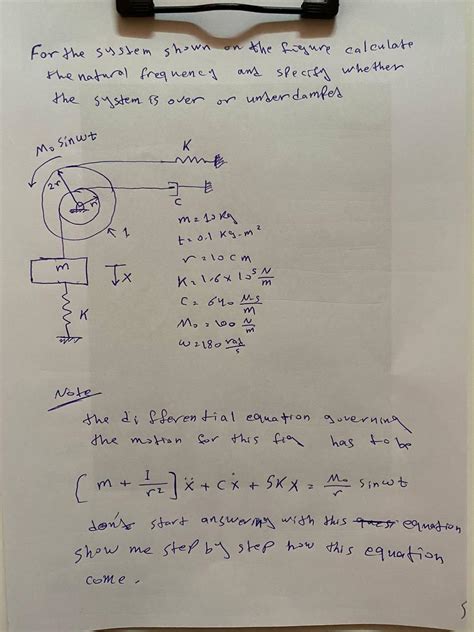 For the system shown on the figure calculate
the natural frequency and specify whether
the system is over or underdamped
M₀ sinωt
K
2r
r
C
I
m
x
K
m = 10 Kg
I = 0.1 Kg-m²
r = 10 cm
K = 1.6 x 10⁵ N/m
C = 640 N-s/m
M₀ = 100 N/m
ω = 180 rad/s
Note
the differential equation governing
the motion for this fig has to be
[m + I/r²] ẍ + cẋ + 5Kx = M₀/r sinωt
don's start answering with this equation
show me step by step how this equation
come.
5